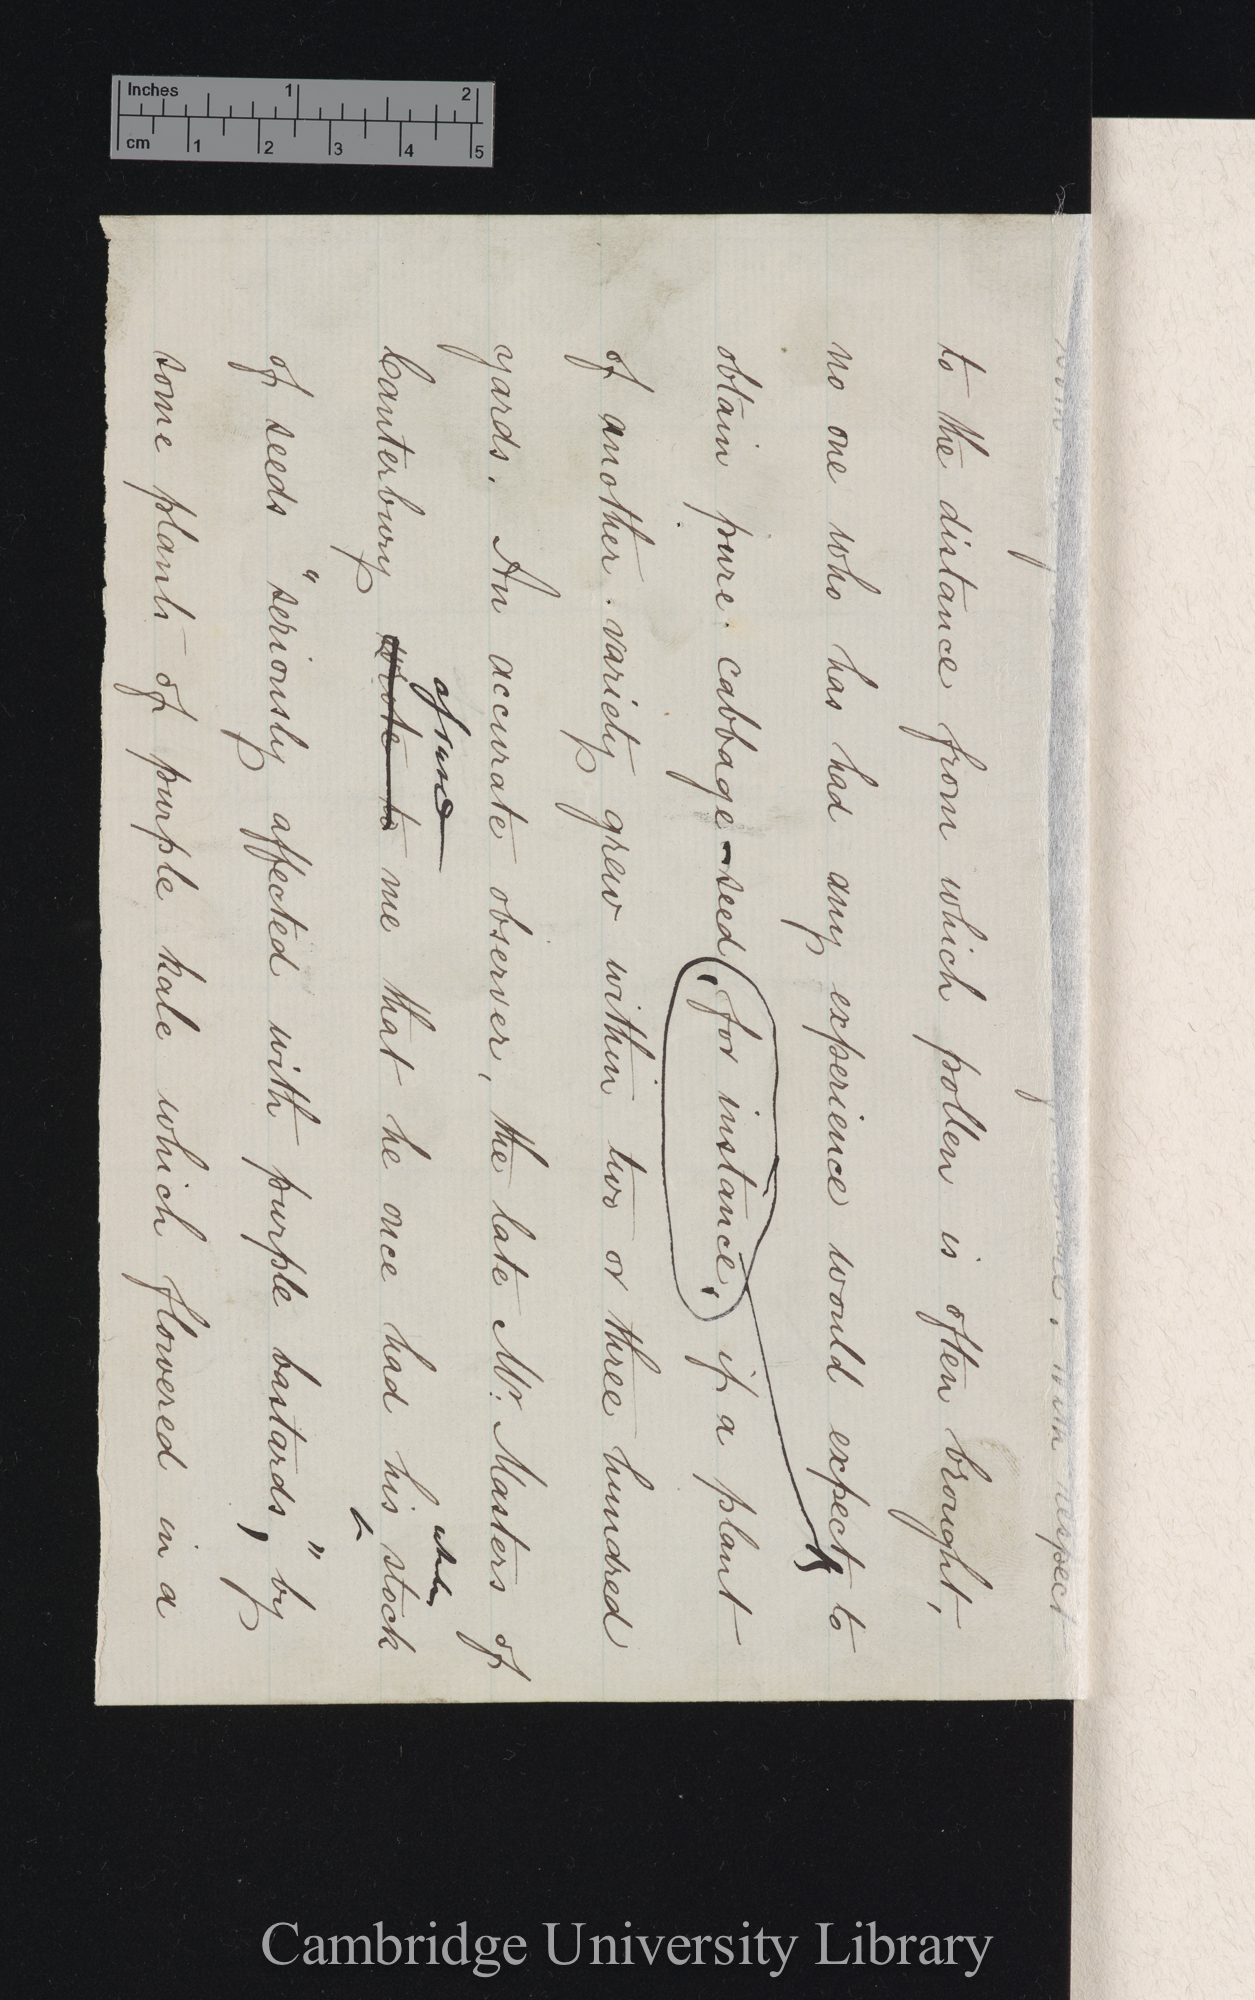 Inches 1 2
cm 1 2 3 4 5
with respect
to the distance from which pollen is often brought,
no one who has had any experience would expect to
obtain pure cabbage-seed, for instance, if a plant
of another variety grew within two or three hundred
yards. An accurate observer, the late Mr. Masters of
assured whole
Canterbury wrote to me that he once had his stock
of seeds "seriously affected with purple bastards," by
some plants of purple kale which flowered in a
Cambridge University Library